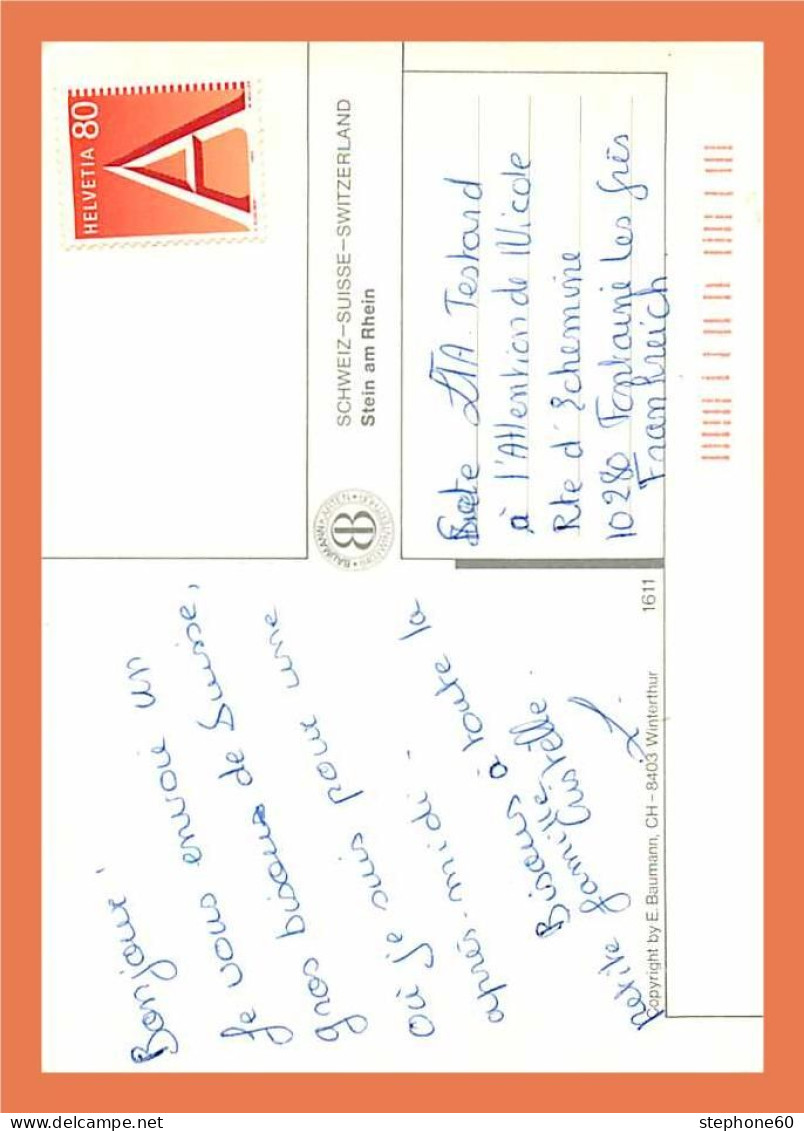 Bonjour,
Je vous envoie un
gros bisous de Suisse,
où je suis pour une
après-midi.
Bisous à toute la
petite famille.
Cristelle
Copyright by E. Baumann, CH-8403 Winterthur
1611
BAUMANN KARTEN
SCHWEIZ–SUISSE–SWITZERLAND
Stein am Rhein
HELVETIA 80
A
Sté LTA Testard
à l'Attention de Nicole
Rte d'Echemine
10280 Fontaine les grès
Frankreich
stephone60